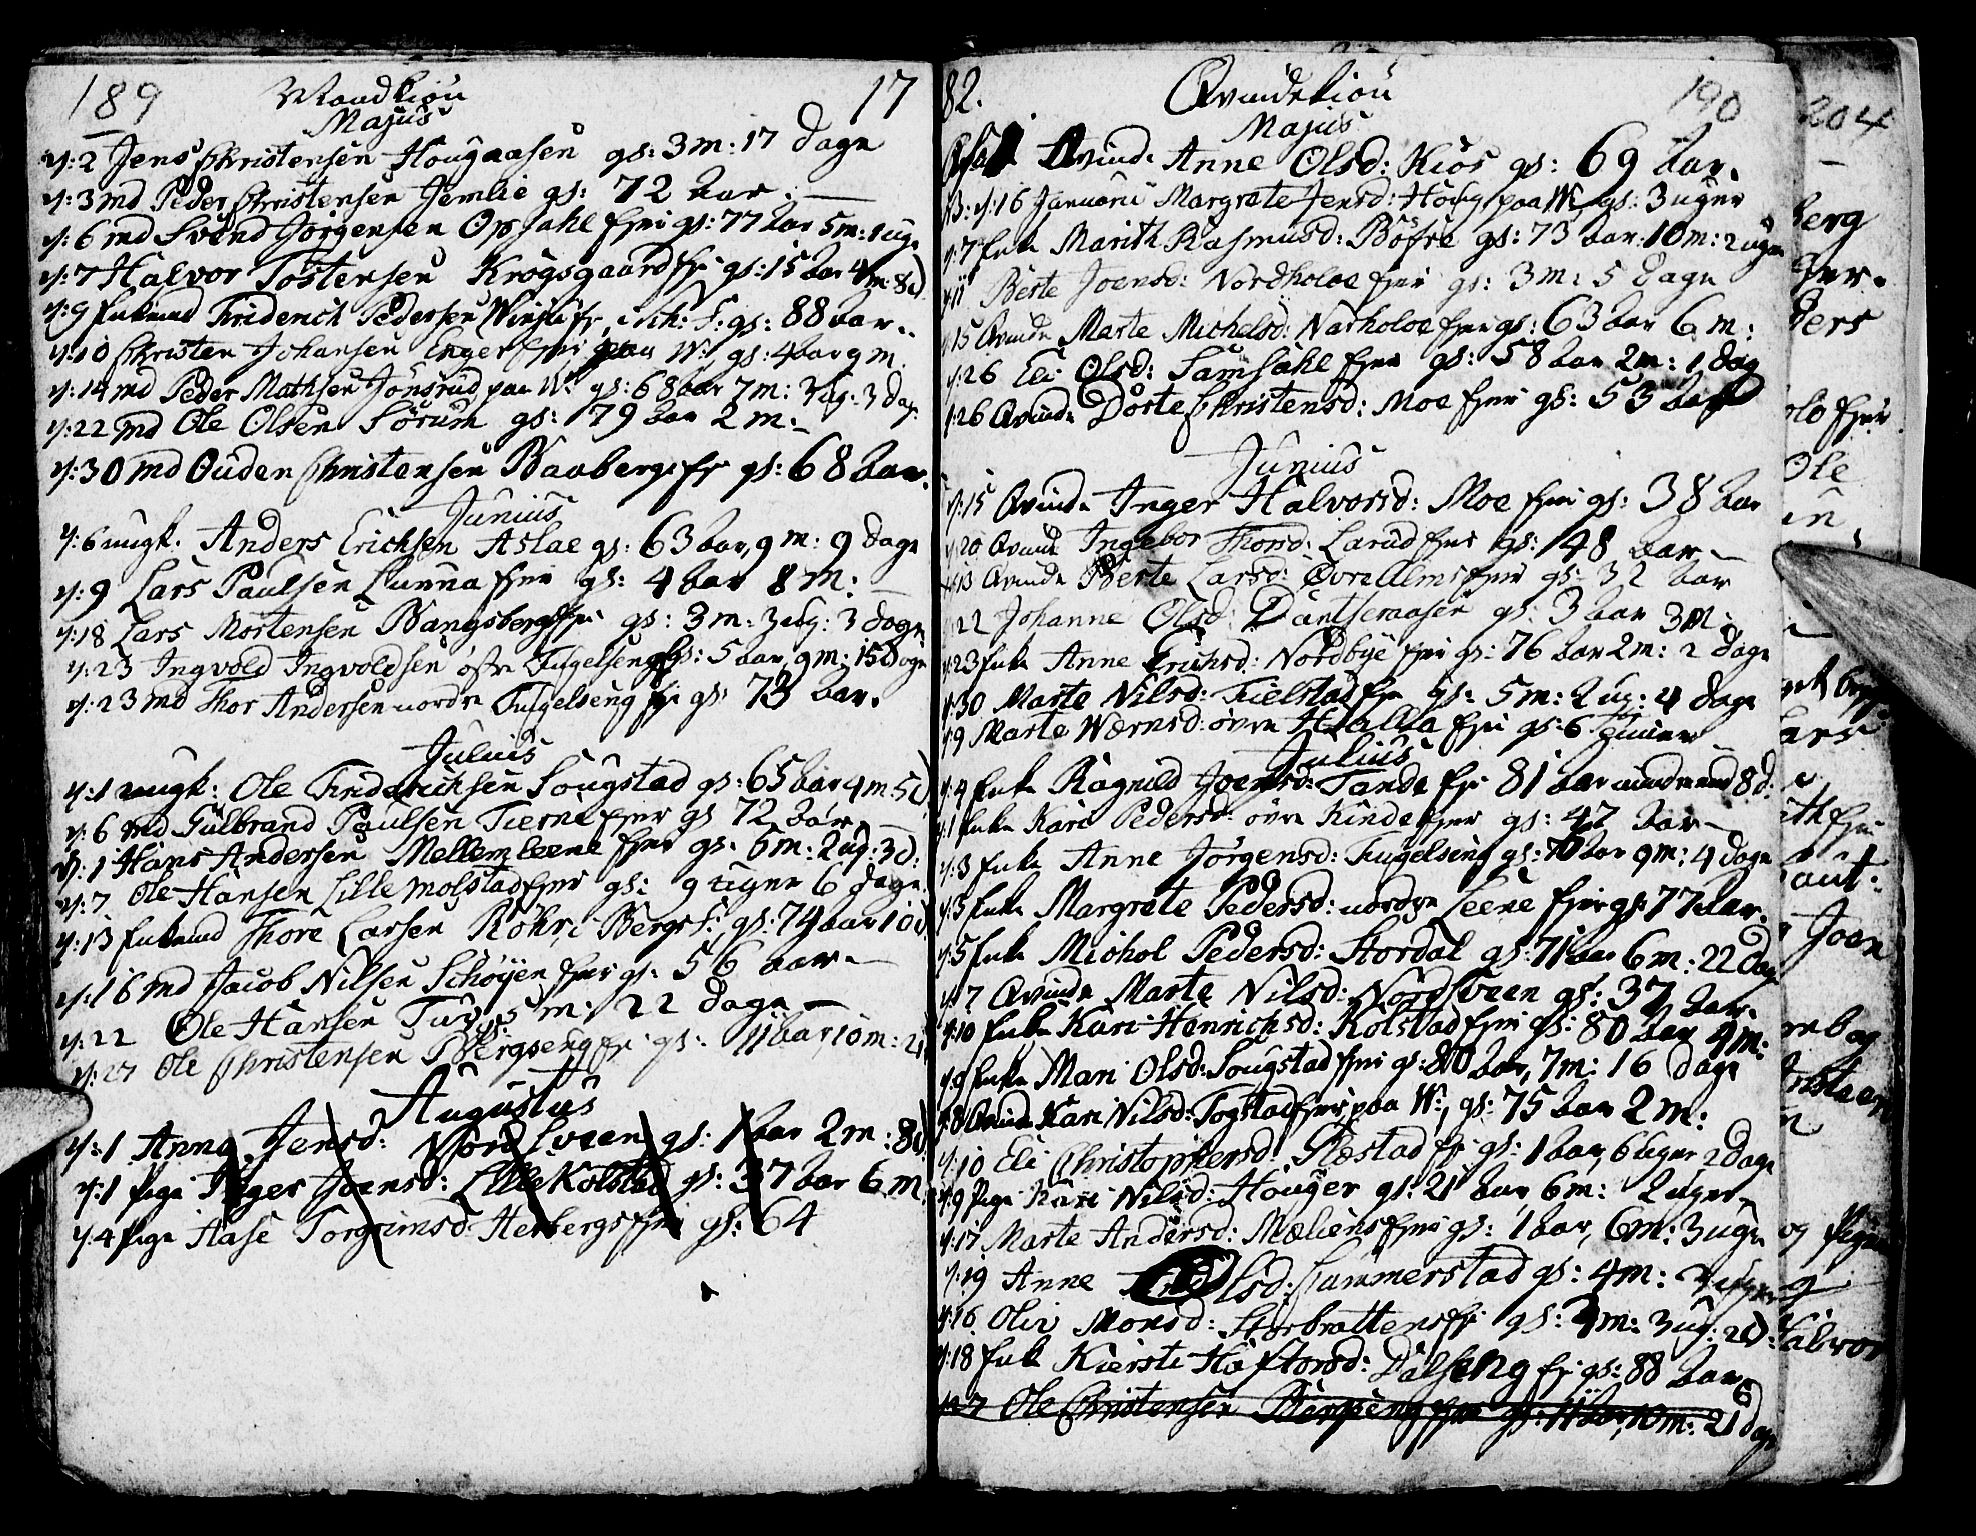 189 Mandkiøn 17
Majus
d: 2 Jens Christensen Hougaasen gs: 3 m: 17 dage
d: 3 md Peder Christensen Jemlie gs: 72 aar
d: 6 md Svend Jörgensen Opsahl gs: 77 aar 5 m: 1 uge
d: 7 Halvor Tostensen Krogsgaard gs: 15 aar 4 m: 8 d
d: 9 Friderich Pedersen gs: 88 aar.
d: 10 Christen Johansen Enger paa W: gs: 4 aar 9 m
d: 14 md Peder Mathsen Jönsrud paa W: gs: 68 aar 7 m: 3 ug: 3 dag:
d: 22 md Ole Olsen Sörum gs: 79 aar 2 m:
d: 30 md Ouden Christensen Baabergs gs: 68 aar.
Junius
d: 6 ungk. Anders Erichsen Aslae gs: 63 aar, 9 m: 9 dage
d: 9 Lars Paulsen Lunna gs: 4 aar 8 m:
d: 18 Lars Mortensen Bangsberg gs: 3 m: 3 ug: 3 dage
d: 23 Ingvold Ingvoldsen östre Fugelseng gs: 5 aar, 9 m: 15 dage
d: 23 md Thor Andersen nordre Fugelseng gs: 73 aar.
Julius
d: 1 ungk: Ole Friderichsen Sougstad gs: 65 aar 4 m: 5 d
d: 6 md Gulbrand Paulsen Tierne gs 72 aar
d: 1 Hans Andersen Mellem Leene gs: 5 m: 2 ug: 3 d:
d: 7 Ole Hansen Lille Molstad gs: 9 uger 6 dage
d: 13 Thore Larsen Röhr, i Bergs S: gs: 74 aar 10 d
d: 16 md Jacob Nilsen Schöyen gs: 56 aar
d: 22 Ole Hansen Tuv gs: 5 m: 22 dage
d: 27 Ole Christensen Bergseng gs: 11 aar 10 m: 21
Augustus
d: 1 Anna Jensd: Nord Sveen gs: 1 aar 2 m: 8 d
d: 1 Pige Inger Joensd: Lille Kolstad gs: 37 aar 6 m
d: 4 Pige Aase Torgrimsd: Herbergs gs: 64
82. Qvindekiön 190
Majus
Qvinde Anne Olsd: Kiös gs: 69 aar.
NB: d: 16 Januarii Margrete Jensd: Houg paa W, gs: 3 uger
d: 7 Enke Marith Rasmusd: Böfre gs: 73 aar 10 m: 2 uger
d: 11 Berte Joensd: Nordholoe gs: 3 m: 5 dage
d: 15 Qvinde Marte Michelsd: Narholoe gs: 63 aar 6 m:
d: 26 Eli Olsd: Samsahl gs: 58 aar 2 m: 1 dag
d: 26 Qvinde Dorte Christensd: Moe gs: 53 aar
Junius
d: 15 Qvinde Inger Halvorsd: Moe gs: 38 aar
d: 20 Qvinde Ingebor Thorsd: Larud gs: 48 aar
d: 13 Qvinde Berte Larsd: Øvre Alm gs: 32 aar
d: 22 Johanne Olsd: Dantseraasen gs: 3 aar 3 m:
d: 23 Enke Anne Erichsd: Nordbye gs: 76 aar 2 m: 2 dage
d: 30 Marte Nilsd: Fielstad gs: 5 m: 2 ug: 4 dage
d: 9 Marte Wærnsd: övre Halla gs: 6 timer
Julius
d: 4 Enke Ragnild Joensd: Tande 81 aar 8 d:
d: 1 Enke Kari Pedersd: övre Kinde gs: 47 aar
d: 3 Enke Anne Jörgensd: Fugelseng gs: 70 aar 9 m: 4 dage
d: 3 Enke Margrete Pedersd: nordre Leene gs: 77 aar.
d: 5 Enke Michol Pedersd: Stordal gs: 71 aar 6 m: 22 dag
d: 7 Qvinde Marte Nilsd: Nord Sveen gs: 37 aar.
d: 10 Enke Kari Henrichsd: Kolstad gs: 80 aar 4 m:
d: 9 Enke Mari Olsd: Sougstad gs: 80 aar, 7 m: 16 dage
d: 8 Qvinde Kari Nilsd: Togstad paa W:, gs: 75 aar 2 m:
d: 10 Eli Christophersd: Fiæstad gs: 1 aar, 6 uger 2 dage
d: 9 Pige Kari Nilsd: Houger gs: 21 aar, 6 m: 2 uger
d: 17 Marte Andersd: Mæliens gs: 1 aar, 6 m: 3 uger
d: 19 Anne Olsd: Lammerstad gs: 4 m:
d: 16 Oliv Monsd: Storbratten gs: 3 m: 3 ug: 2 d:
d: 18 Enke Kierste Haftorsd: Dalseng gs: 88 aar
d: 27 Ole Christensen Bergseng gs: 11 aar, 10 m: 21 dage
204
berg
ders
Ole
Joen
Halvor